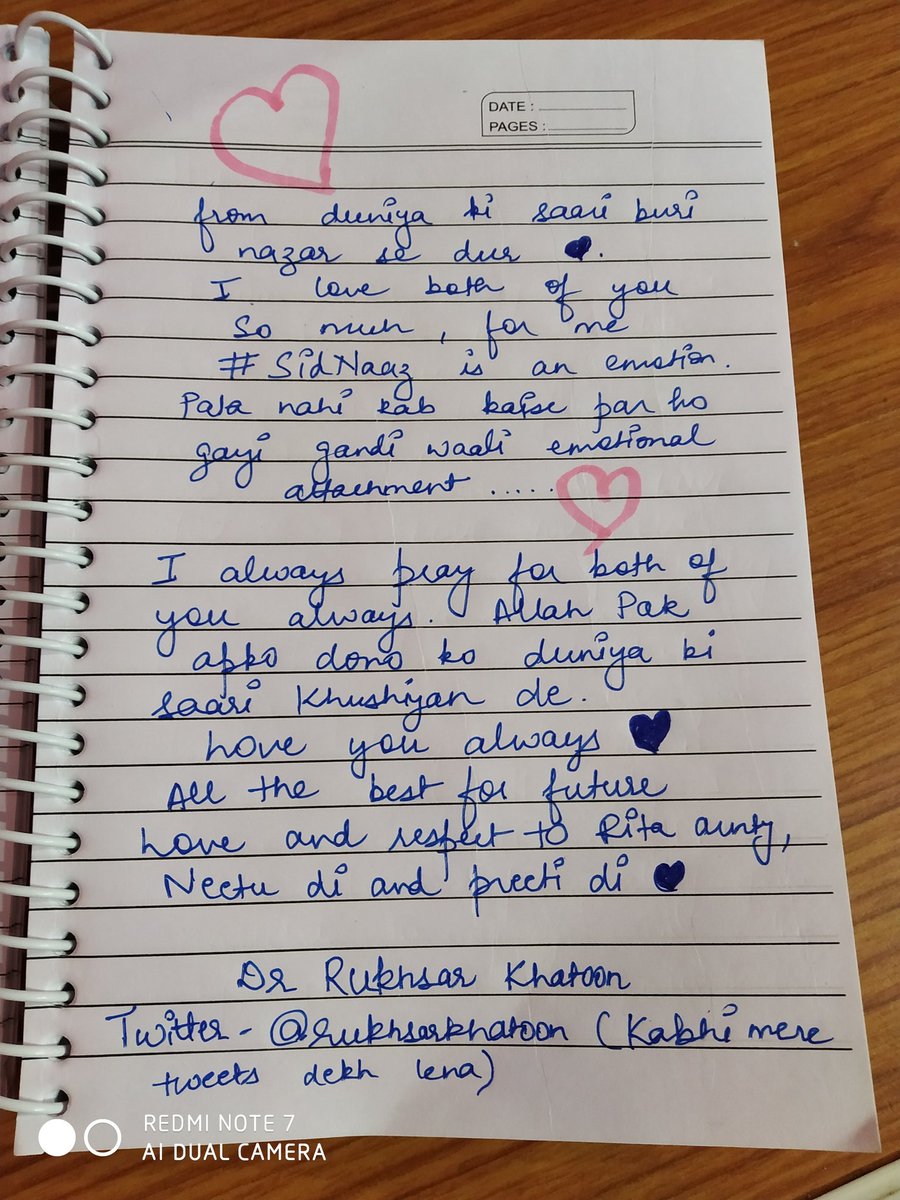 DATE :
PAGES :
from duniya ki saari buri
nazar se dur
I love both of you
So much, for me
#SidNaaz is an emotion.
Pata nahi kab kaise par ho
gayi gandi waali emotional
attachment .....
I always pray for both of
you always. Allah Pak
apko dono ko duniya ki
saari Khushiyan de.
Love you always
All the best for future
Love and respect to Rita aunty,
Neetu di and preeti di
Dr Rukhsar Khatoon
Twitter - @rukhsarkhatoon (Kabhi mere
tweets dekh lena)
REDMI NOTE 7
AI DUAL CAMERA